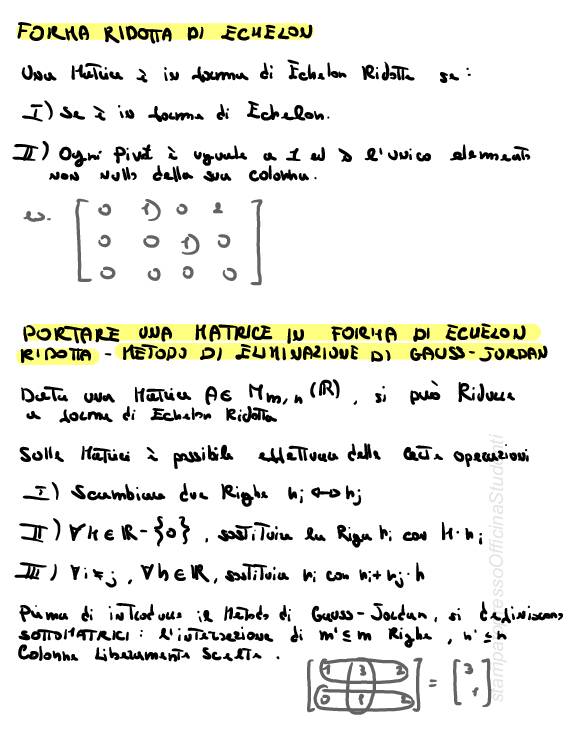 FORMA RIDOTTA DI ECHELON
Una Matrice è in forma di Echelon Ridotta se:
I) Se è in forma di Echelon.
II) Ogni Pivot è uguale a 1 ed è l'unico elemento
non nullo della sua colonna.
es. [ 0 1) 0 2
0 0 1) 0
0 0 0 0 ]
PORTARE UNA MATRICE IN FORMA DI ECHELON
RIDOTTA - METODO DI ELIMINAZIONE DI GAUSS-JORDAN
Data una Matrice A∈ Mm,n (ℝ), si può Ridurre
a forma di Echelon Ridotta
Sulle Matrici è possibile effettuare delle certe operazioni
I) Scambiare due Righe ri ↔ rj
II) ∀k∈ℝ-{0}, sostituire la Riga ri con k·ri
III) ∀i≠j, ∀h∈ℝ, sostituire ri con ri+rj·h
Prima di introdurre il Metodo di Gauss-Jordan, si definiscono
SOTTOMATRICI: l'intersezione di m'≤m Righe, n'≤n
Colonne Liberamente Scelte.
[ 1 3 2
0 1 2 ] = [ 3
1 ]
stampa presso OfficinaStudenti